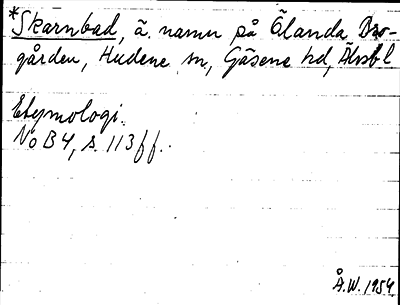 *Skarnbad, ä. namn på Ölanda Bro-
gården, Hudene sn, Gäsene hd, Älvsbl
Etymologi.
NoB 4, s. 113 ff.
Å.W. 1954